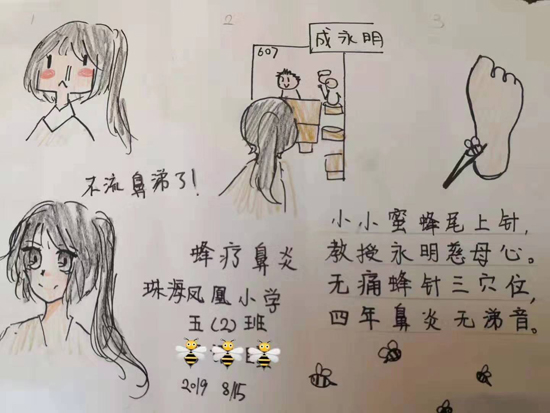 1
2
3
607
成永明
不流鼻涕了!
蜂疗鼻炎
珠海凤凰小学
五(2)班
2019 8/15
小小蜜蜂尾上针,
教授永明慈母心。
无痛蜂针三穴位,
四年鼻炎无涕音。